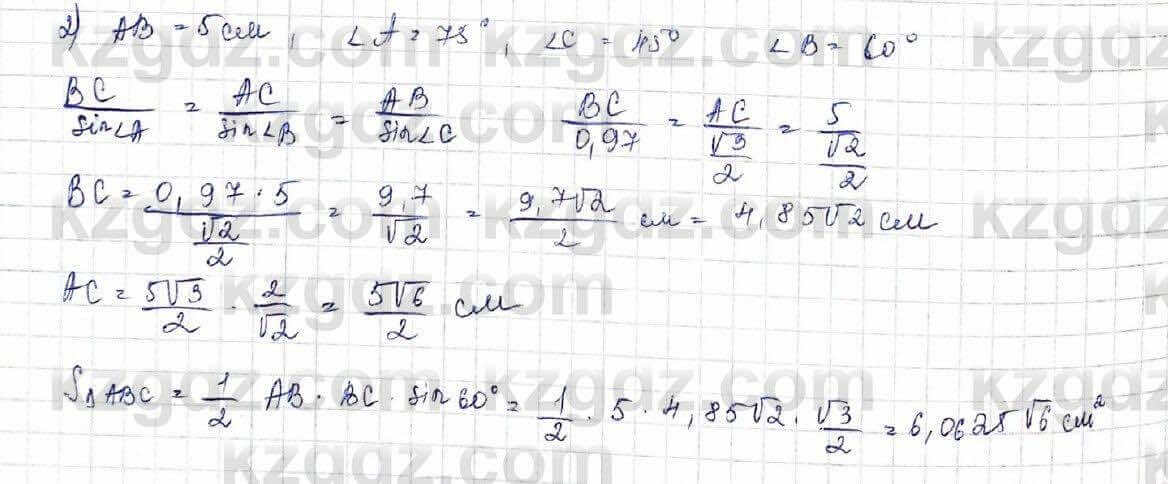 2) AB = 5 см, ∠A = 75°, ∠C = 45° ∠B = 60°
BC/sin∠A = AC/sin∠B = AB/sin∠C BC/0,97 = AC/(√3/2) = 5/(√2/2)
BC = (0,97 · 5)/(√2/2) = 9,7/√2 = 9,7√2/2 см = 4,85√2 см
AC = 5√3/2 · 2/√2 = 5√6/2 см
S△ABC = 1/2 AB · BC · sin60° = 1/2 · 5 · 4,85√2 · √3/2 = 6,0625√6 см²